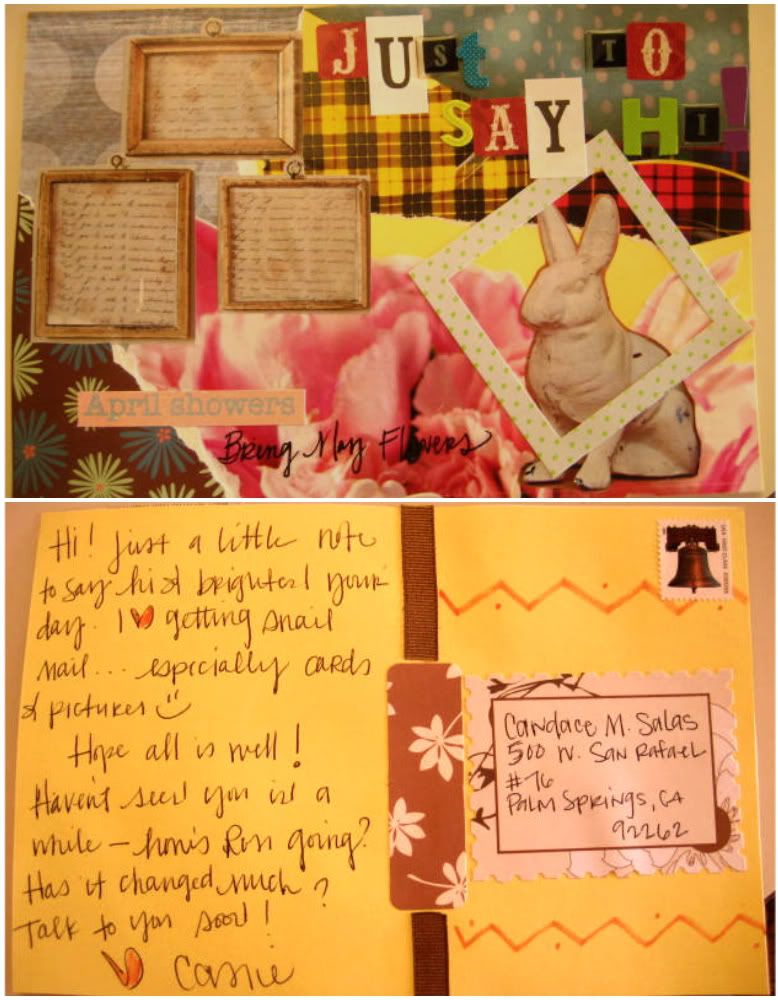 JUst TO
SAY HI!
April showers
Bring May Flowers
Hi! Just a little note
to say hi & brighten your
day. I ♥ getting snail
mail... especially cards
& pictures
Hope all is well!
Haven't seen you in a
while – how's Ross going?
Has it changed much?
Talk to you soon!
♥ Cassie
Candace M. Salas
500 W. San Rafael
#76
Palm Springs, CA
92262